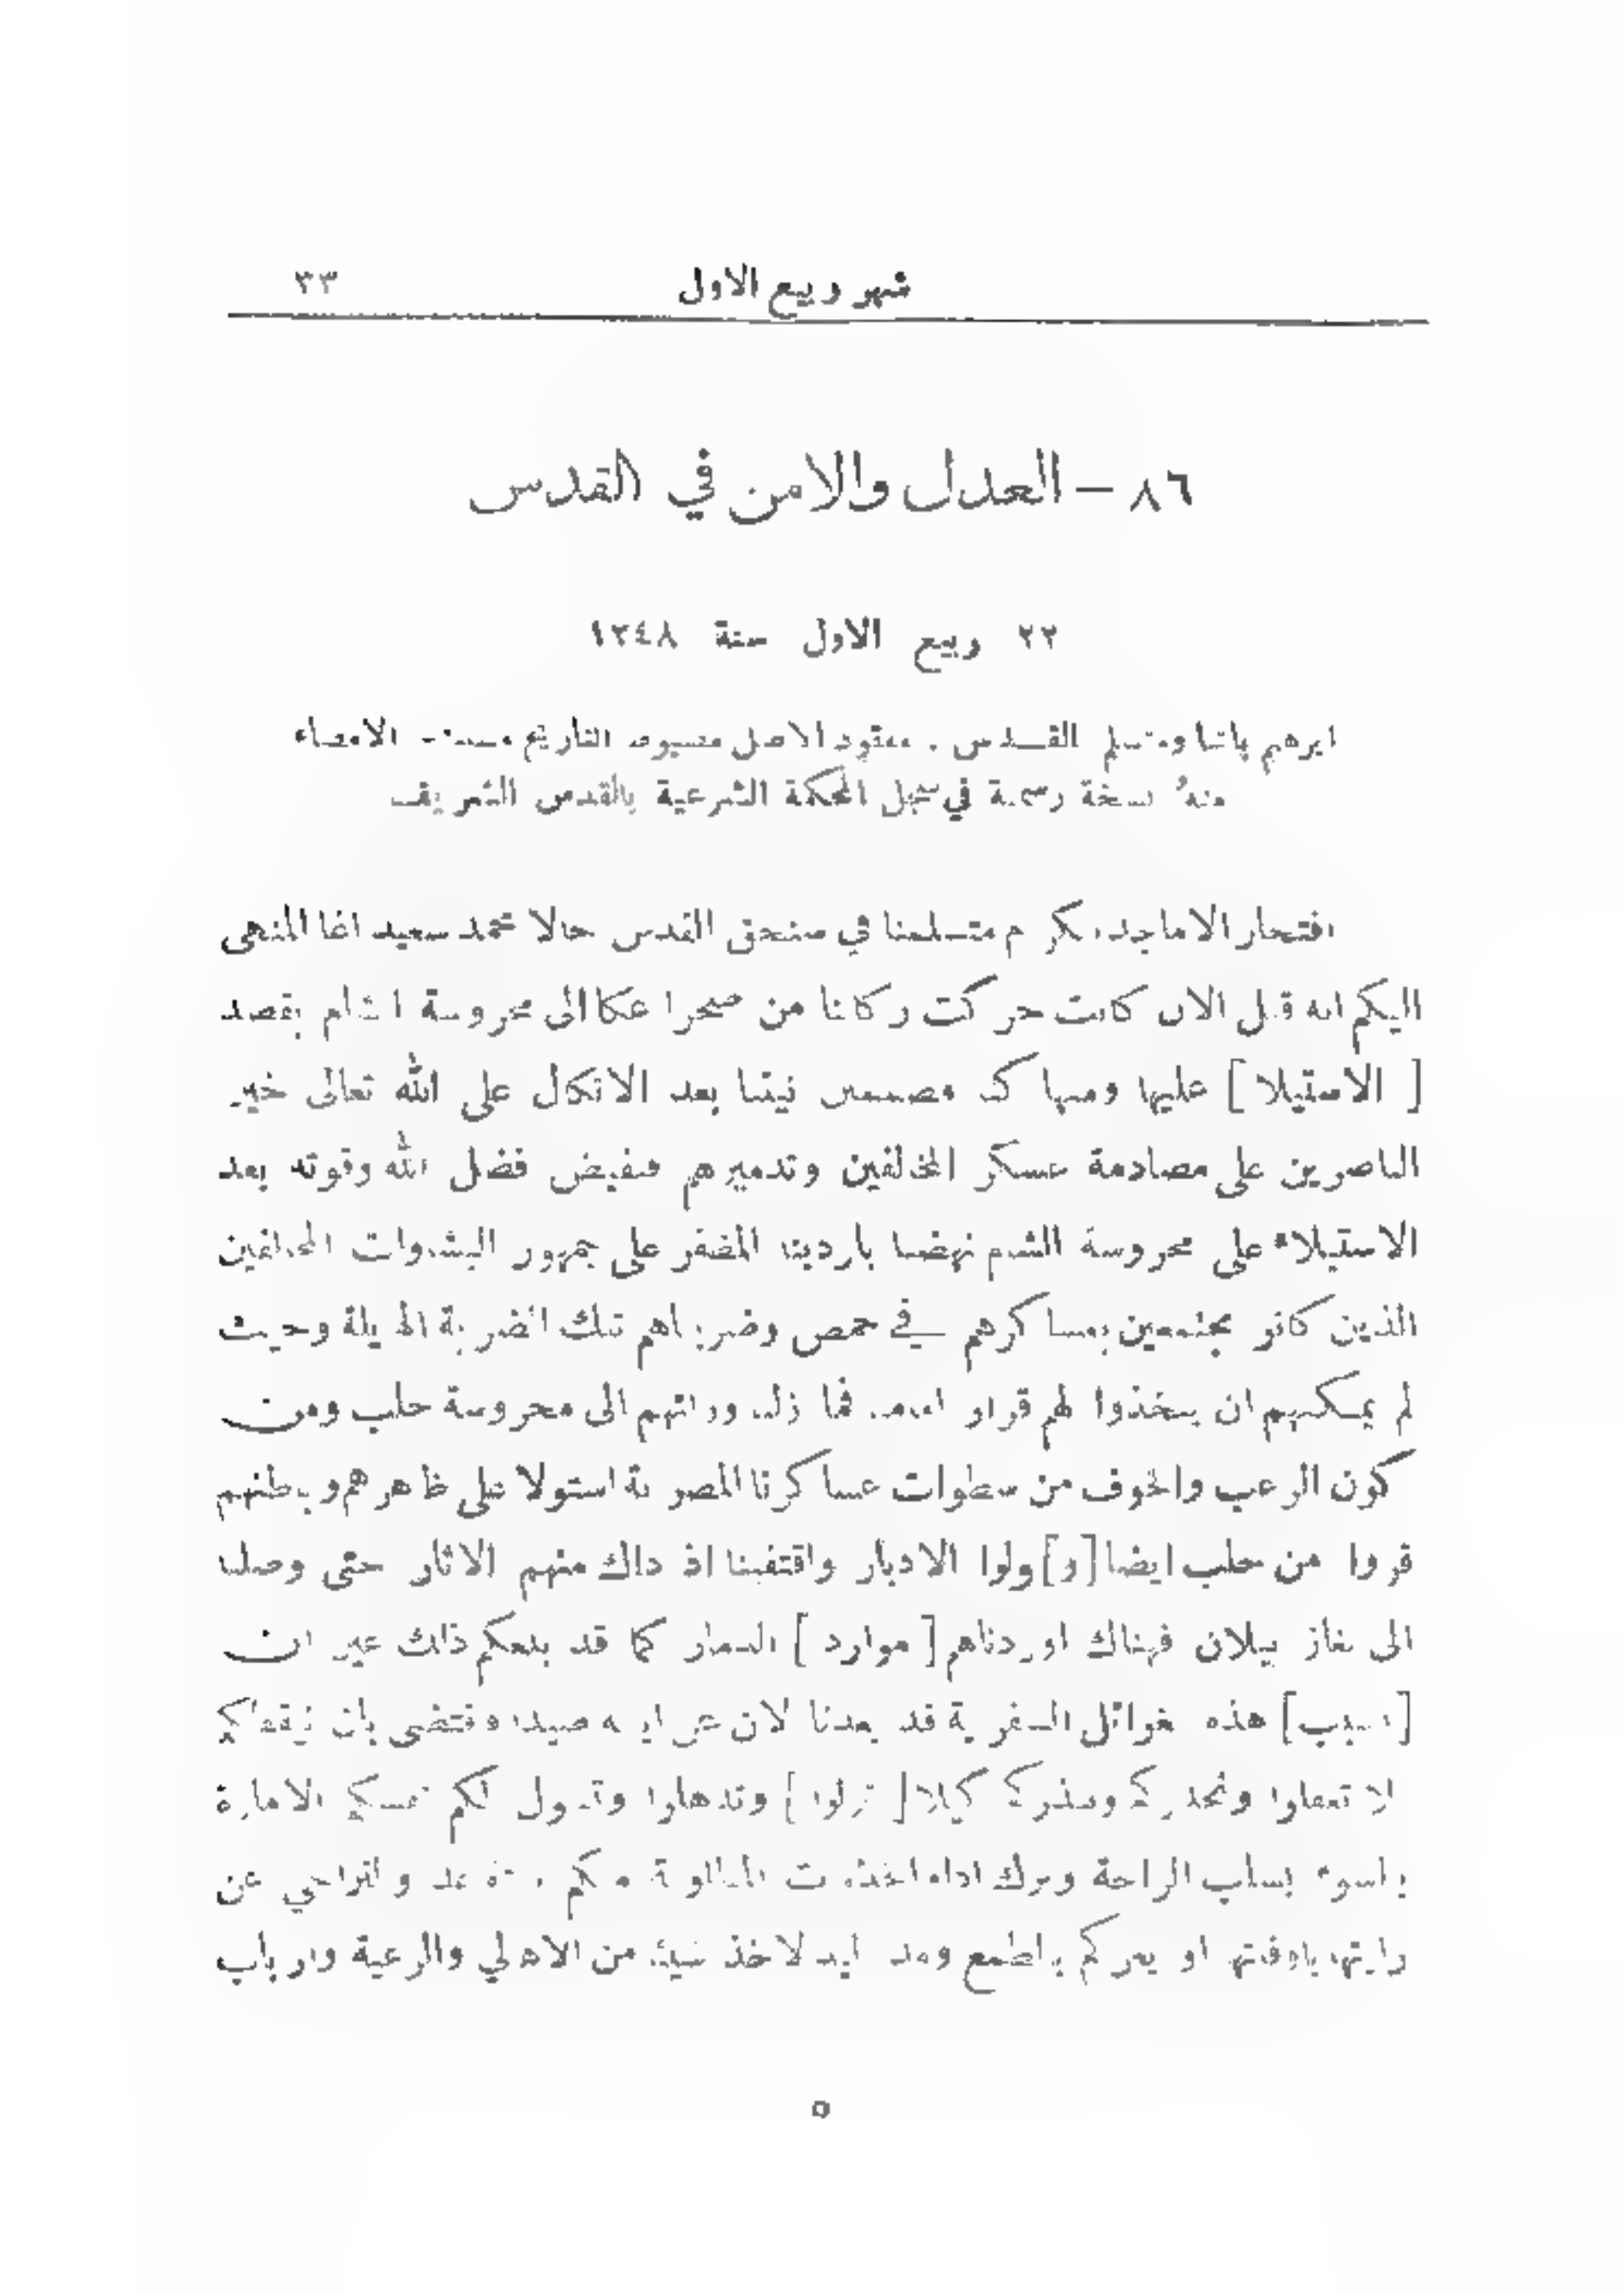 شهر ربيع الاول ٣٣
٨٦ – العدل والامن في القدس
٢٢ ربيع الاول سنة ١٢٤٨
ابرهيم باشا ومتسلم القدس . مفقود الاصل مضبوط التاريخ الامضاء
منهُ نسخة رسمية في سجل المحكمة الشرعية بالقدس الشريف
افتخار الاماجد مكرم متسلمنا في سنجق القدس حالا محمد سعيد اغا المنهى
اليكم انه قبل الان كانت حركت ركابنا من صحرا عكا الى محروسة الشام بقصد
[ الاستيلا ] عليها ومنها كنا مصممين نيتنا بعد الاتكال على الله تعالى خير
الناصرين على مصادمة عسكر المخالفين وتدميرهم فبفيض فضل الله وقوته بعد
الاستيلاء على محروسة الشام نهضنا بارديتنا المضفر على جمهور البشوات المخالفين
الذين كانو مجتمعين بعساكرهم في حمص وضربناهم تلك الضربة الهايلة وحيث
لم يمكنهم ان يتخذوا لهم قرار امامنا فما زلنا ورائهم الى محروسة حلب ومن
كون الرعب والخوف من سطوات عساكرنا المصرية استولا على ظاهرهم وباطنهم
فروا من حلب ايضا [و] ولوا الادبار واقتفينا اذ ذاك منهم الاثار حتى وصلنا
الى بغاز بيلان فهناك اوردناهم [ موارد ] الدمار كما قد بلغكم ذلك غير ان
[بسبب] هذه غوائل السفرية قد بعدنا لان عن ايالة صيدا فاقتضى بان نيقظكم
لا تغفلوا ونحذركم وننذركم كيلا [ تزلوا ] وتذهلوا وتسول لكم نفسكم الامارة
بالسوء بسلب الراحة وترك اداء الخدمات المطلوبة منكم والتراخي عن
رايتها باوقتها او يغركم الطمع ومد اليد لاخذ شيئ من الاهالي والرعية وارباب
٥